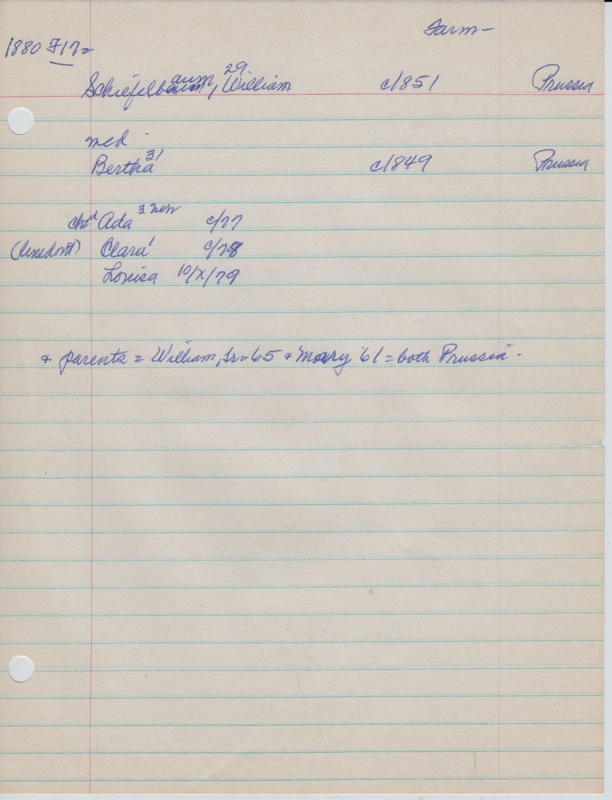 Farm-
1880 F17=
Schiefelbaum, William 29 c/1851 Prussia
med
Bertha 31 c/1849 Prussia
chd Ada 3 c/77
Clara 1 c/78
Louisa 10/X/79
+ parents = William, Sr-65 + Mary 61 = both Prussia.